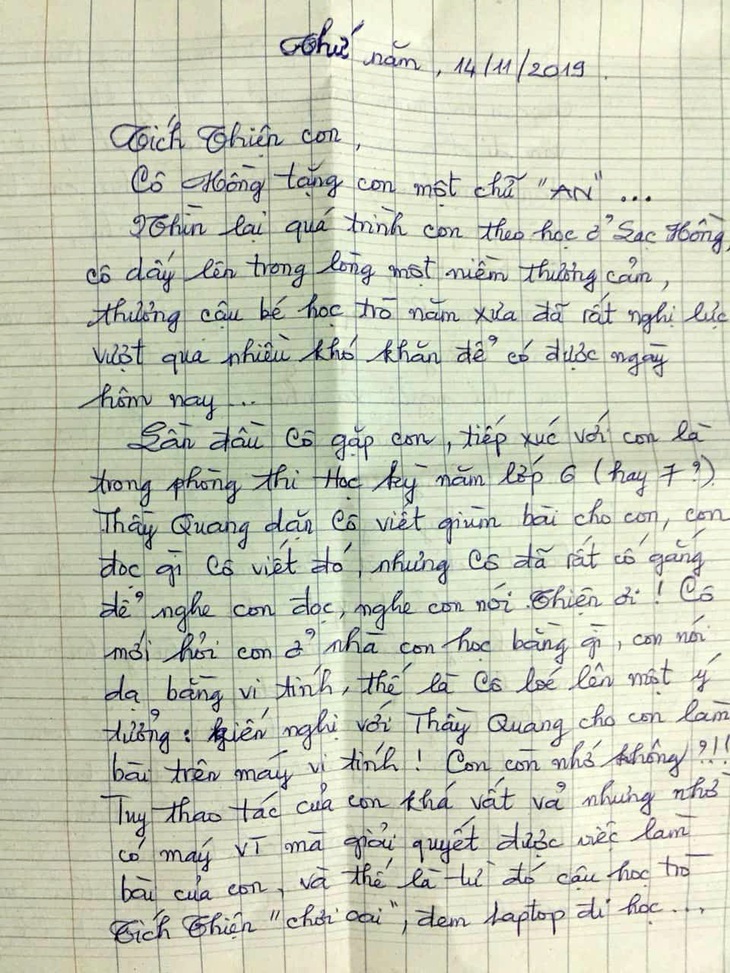 Thứ năm, 14/11/2019.
Tích Thiện con,
Cô Hồng tặng con một chữ "AN"...
Nhìn lại quá trình con theo học ở Lạc Hồng,
cô dấy lên trong lòng một niềm thương cảm,
thương cậu bé học trò năm xưa đã rất nghị lực
vượt qua nhiều khó khăn để có được ngày
hôm nay...
Lần đầu Cô gặp con, tiếp xúc với con là
trong phòng thi Học kỳ năm lớp 6 (hay 7?).
Thầy Quang dặn Cô viết giùm bài cho con, con
đọc gì Cô viết đó, nhưng Cô đã rất cố gắng
để nghe con đọc, nghe con nói. Thiện ơi! Cô
mới hỏi con ở nhà con học bằng gì, con nói
dạ bằng vi tính, thế là Cô loé lên một ý
tưởng: kiến nghị với Thầy Quang cho con làm
bài trên máy vi tính! Con còn nhớ không?!!
Tuy thao tác của con khá vất vả nhưng nhờ
có máy VT mà giải quyết được việc làm
bài của con, và thế là từ đó cậu học trò
Tích Thiện "chơi oai", đem laptop đi học...